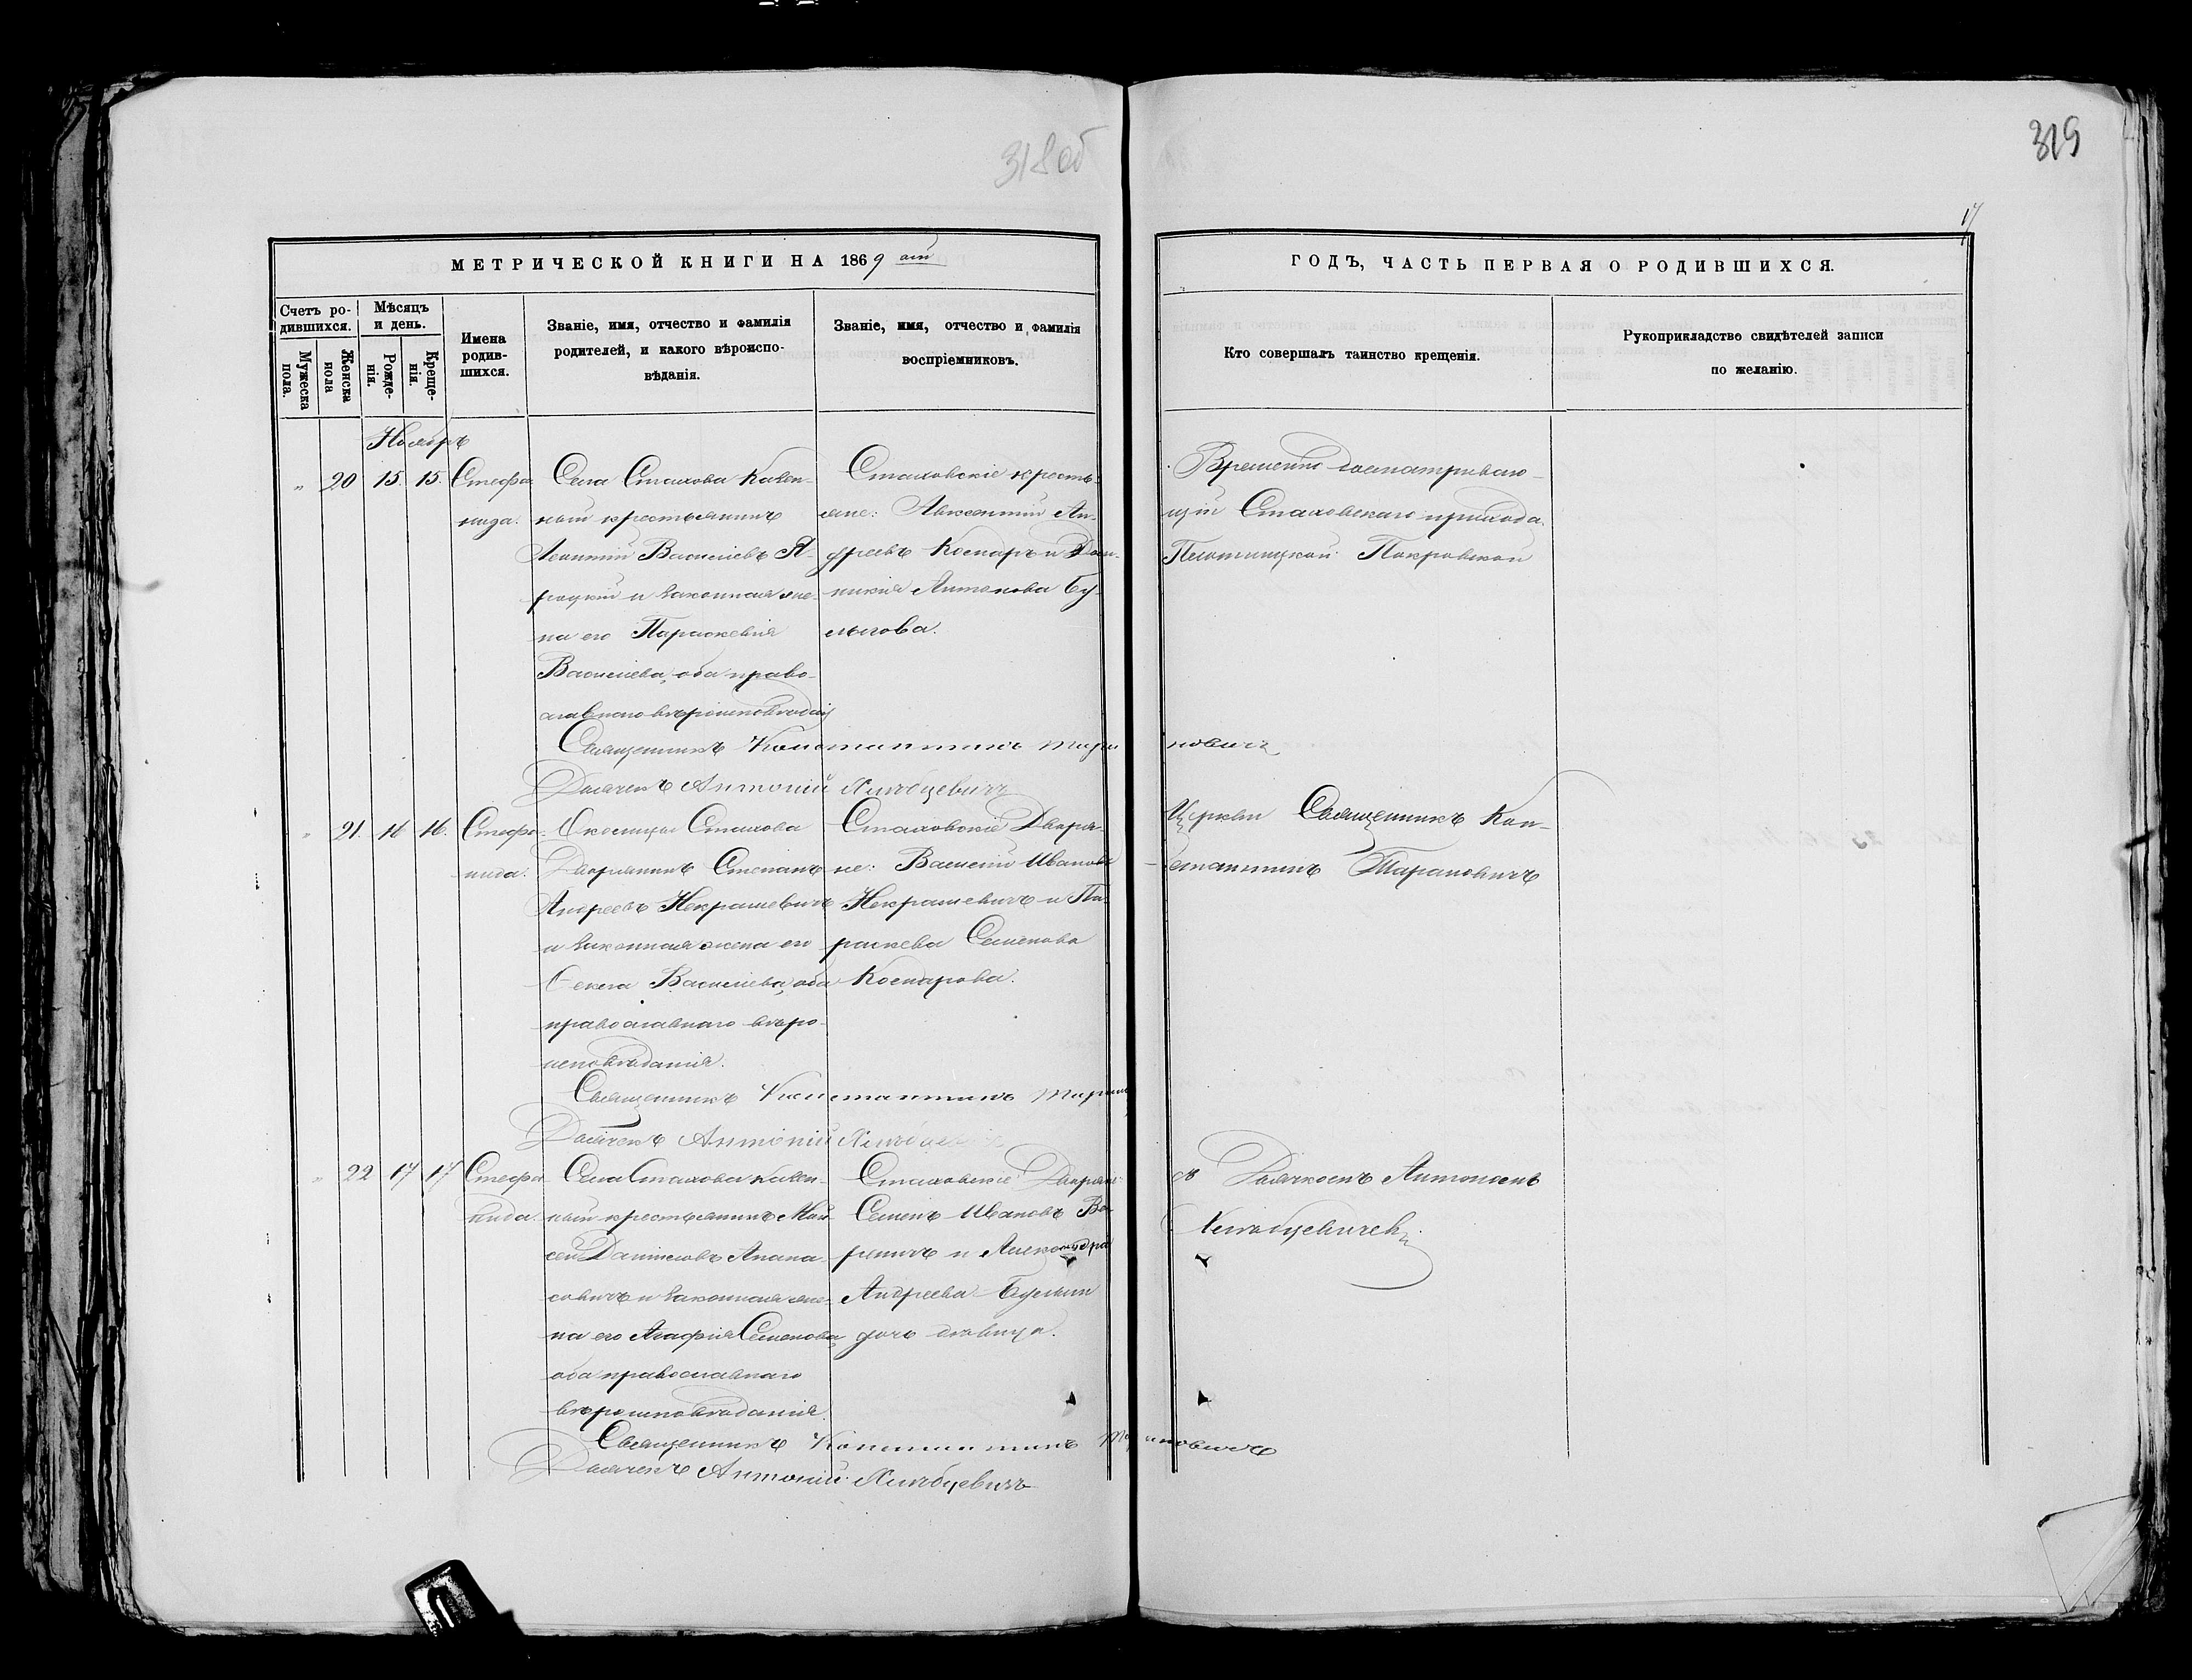 318 об
319
17
МЕТРИЧЕСКОЙ КНИГИ НА 1869 ый
ГОДЪ, ЧАСТЬ ПЕРВАЯ О РОДИВШИХСЯ.
Счетъ ро-
дившихся.
Мужеска
пола.
Женска
пола
Мѣсяцъ
и день.
Рожде-
нія.
Креще-
нія.
Имена
родив-
шихся.
Званіе, имя, отчество и фамилія
родителей, и какого вѣроиспо-
вѣданія.
Званіе, имя, отчество и фамилія
воспріемниковъ.
Кто совершалъ таинство крещенія.
Рукоприкладство свидѣтелей записи
по желанію.
Ноябрь
" 20 15. 15. Стефа-
нида.
Села Стахова Казен-
ный крестьянинъ
Леонтій Василіевъ Я-
роцкій и законная же-
на его Параскевія
Василіева, оба право-
славнаго вѣроисповѣданія
Стаховскіе кресть-
яне: Авксентій Ан-
дреевъ Коснаръ и
Антонова Бу-
Временно досматриваю-
щій Стаховскаго прихода
Плотницкой Покровской
Священникъ Константинъ Тарановичъ
Дьячекъ Антоній Хлѣбцевичъ
" 21. 16 16. Стефа-
нида.
Околицы Стахова
Дворянинъ Степанъ
Андреевъ Некрашевичъ
и законная жена его
Фекла Василіева, оба
православнаго вѣро-
исповѣданія.
Стаховскіе Дворя-
не: Василій Ивановъ
Некрашевичъ и Па-
раскева Семенова
Коснарова.
Церкви Священникъ Кон-
стантинъ Тарановичъ
Священникъ Константинъ
Дьячекъ Антоній Хлѣбцевичъ
" 22 17 17 Стефа-
нида.
Села Стахова казен-
ный крестьянинъ Мои-
сей Даниловъ Апана-
совичъ и законная же-
на его Агафія Семенова,
оба православнаго
вѣроисповѣданія.
Стаховскіе Дворяне
Семенъ Ивановъ
и Александра
Андреева
дочь дѣвица.
съ Дьячкомъ Антоніемъ
Хлѣбцевичемъ.
Священникъ Константинъ Тарановичъ
Дьячекъ Антоній Хлѣбцевичъ